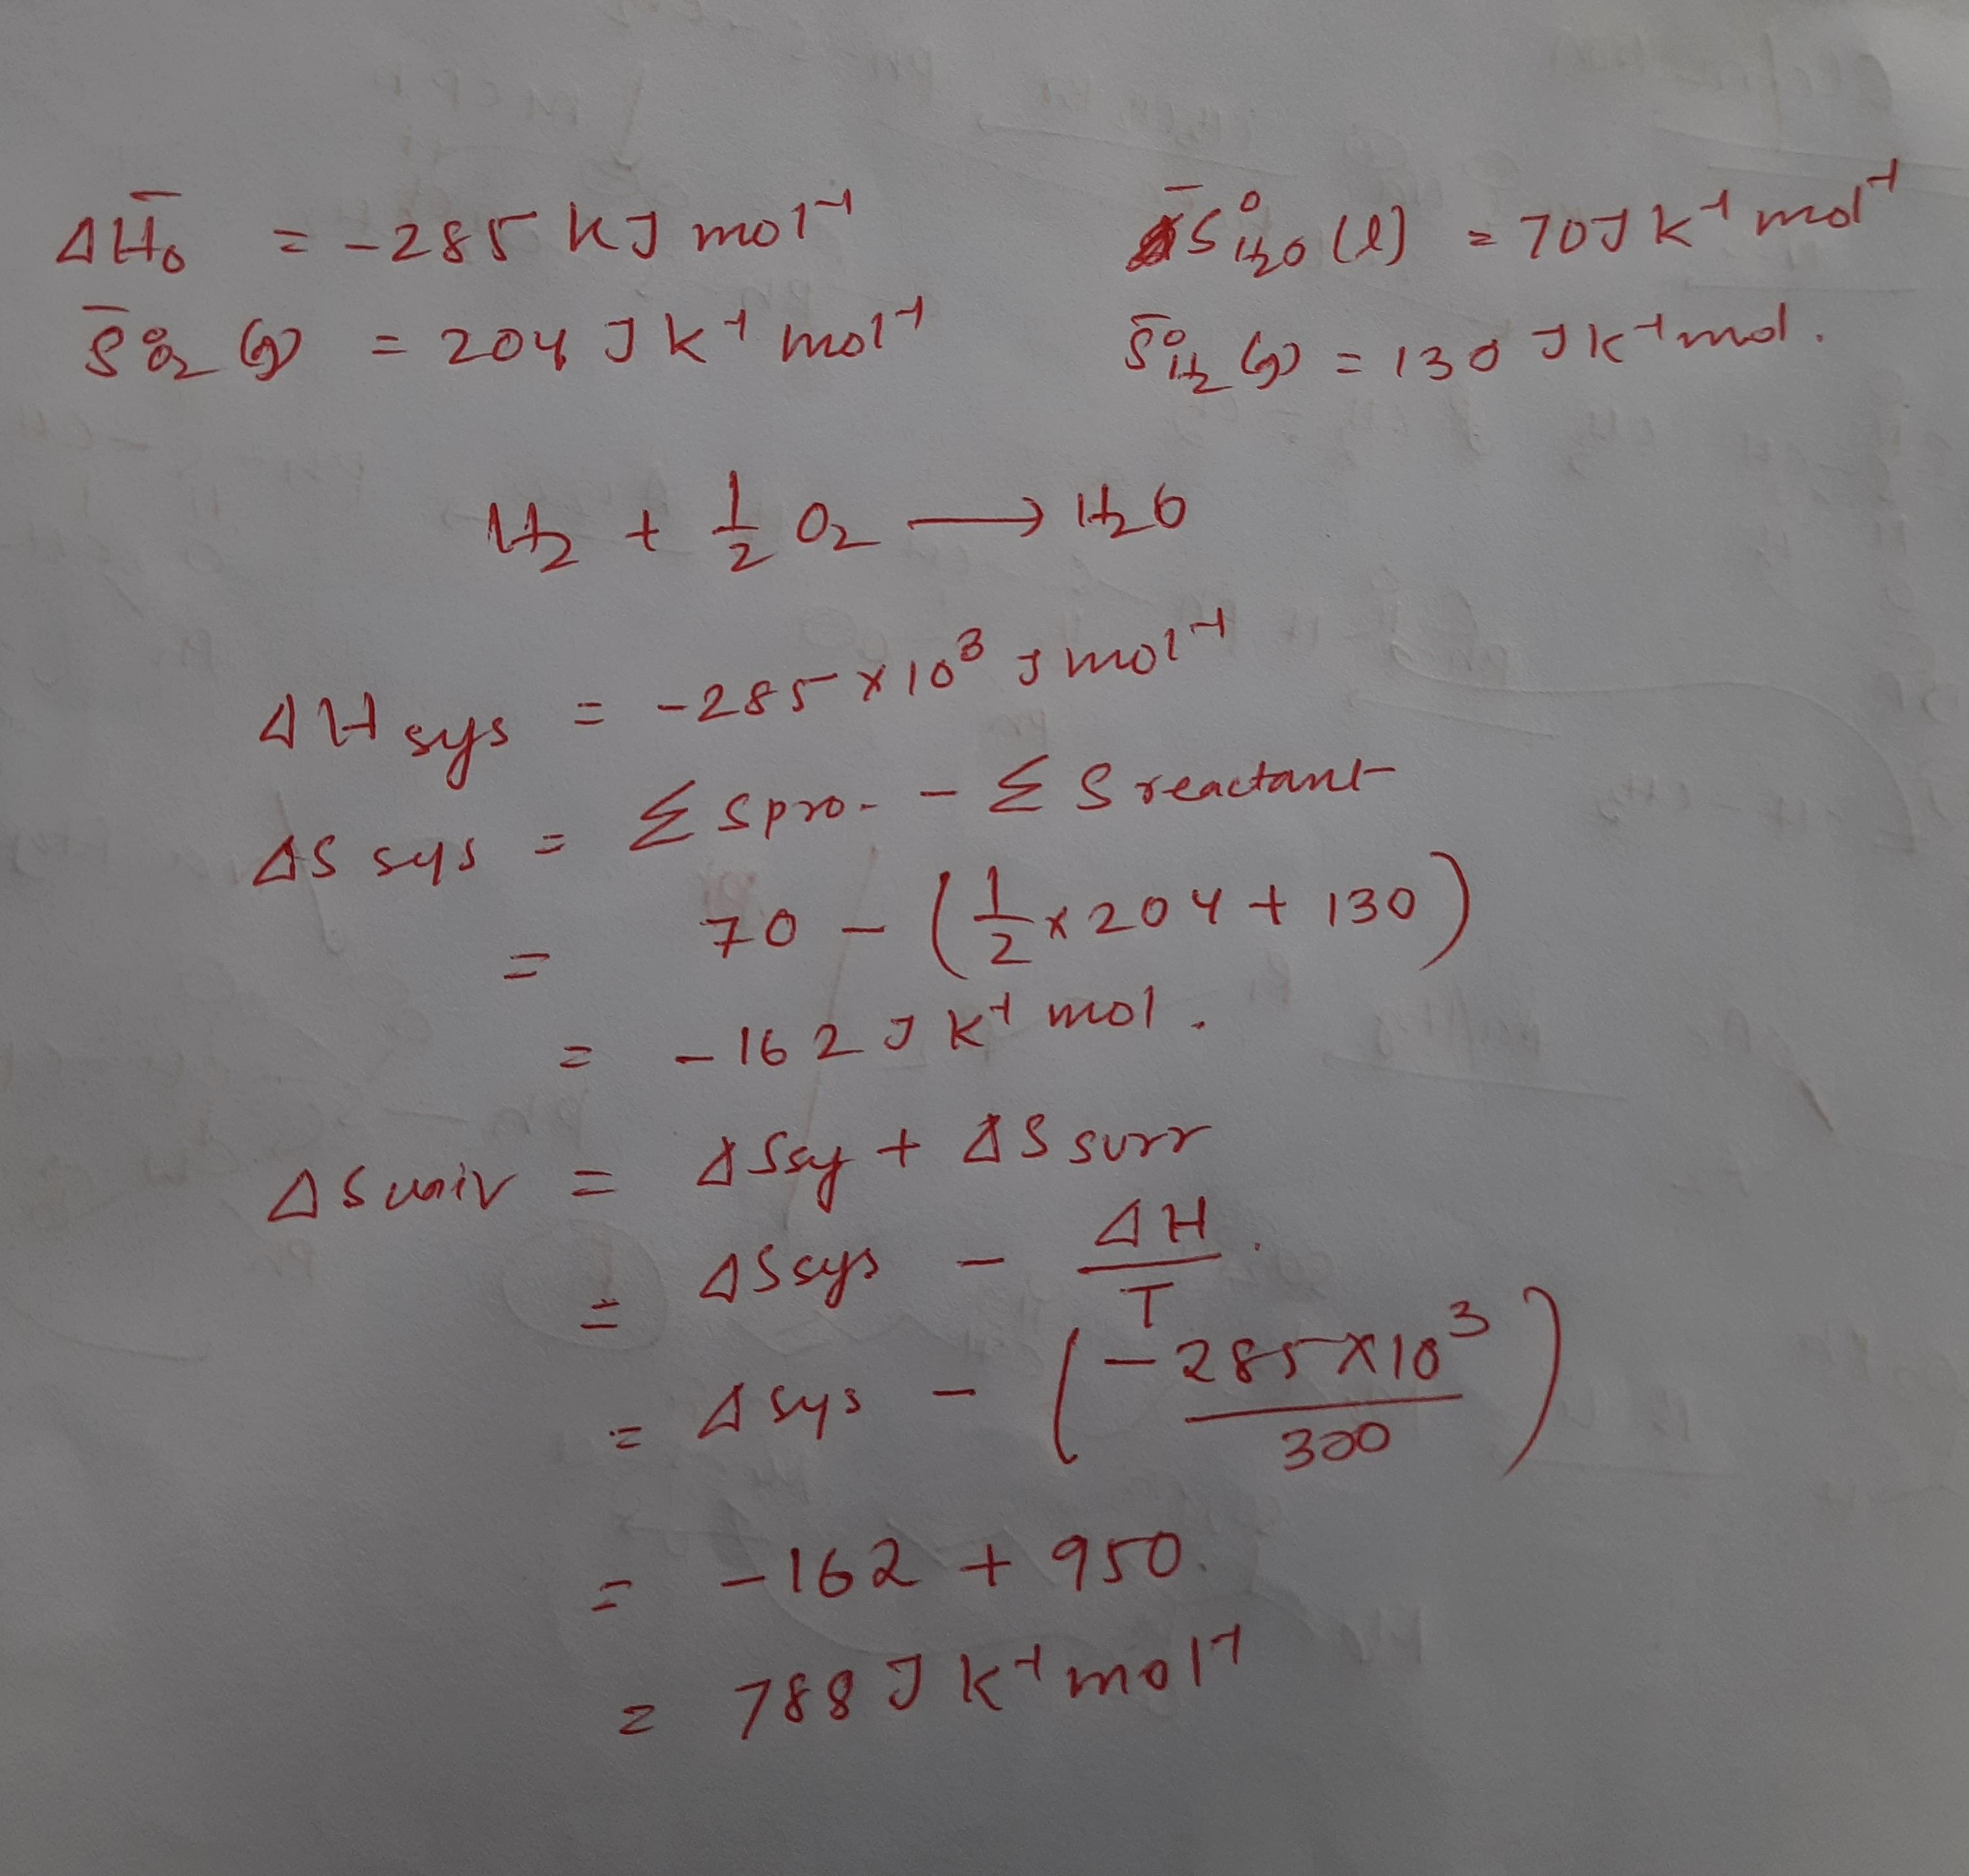 ΔH̅₀ = -285 kJ mol⁻¹
S̅°H₂O (l) = 70 J K⁻¹ mol⁻¹
S̅°O₂ (g) = 204 J K⁻¹ mol⁻¹
S̅°H₂ (g) = 130 J K⁻¹ mol.
H₂ + 1/2 O₂ ⟶ H₂O
ΔH sys = -285 × 10³ J mol⁻¹
ΔS sys = Σ S pro. - Σ S reactant
= 70 - (1/2 × 204 + 130)
= -162 J K⁻¹ mol.
ΔS univ = ΔS sy + ΔS surr
= ΔS sys - ΔH/T.
= Δ sys - (-285 × 10³/300)
= -162 + 950.
= 788 J K⁻¹ mol⁻¹